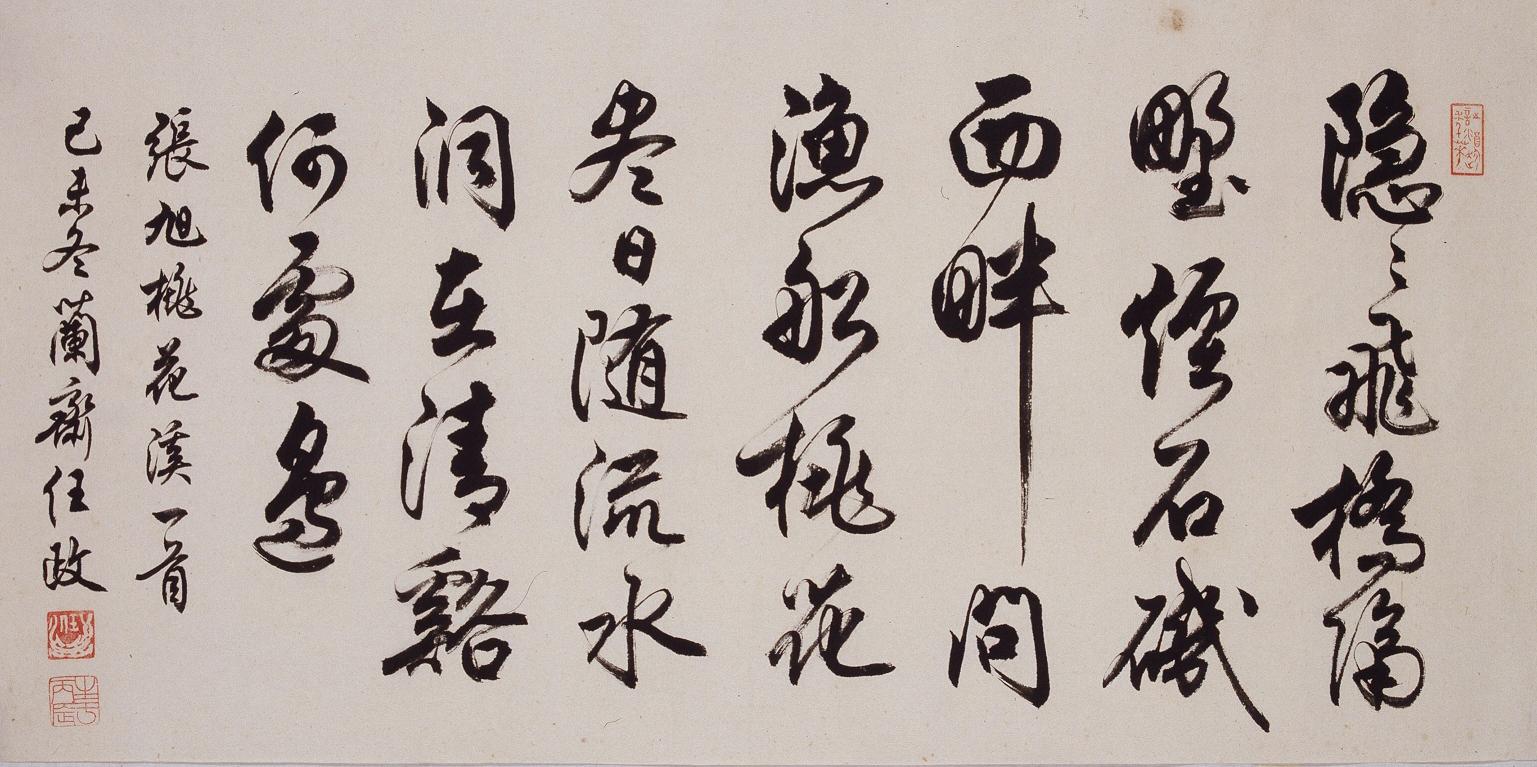 隱々飛橋隔
野煙石磯
西畔問
漁船桃花
尽日随流水
洞在清谿
何處邊
張旭桃花溪一首
己未冬蘭齋任政